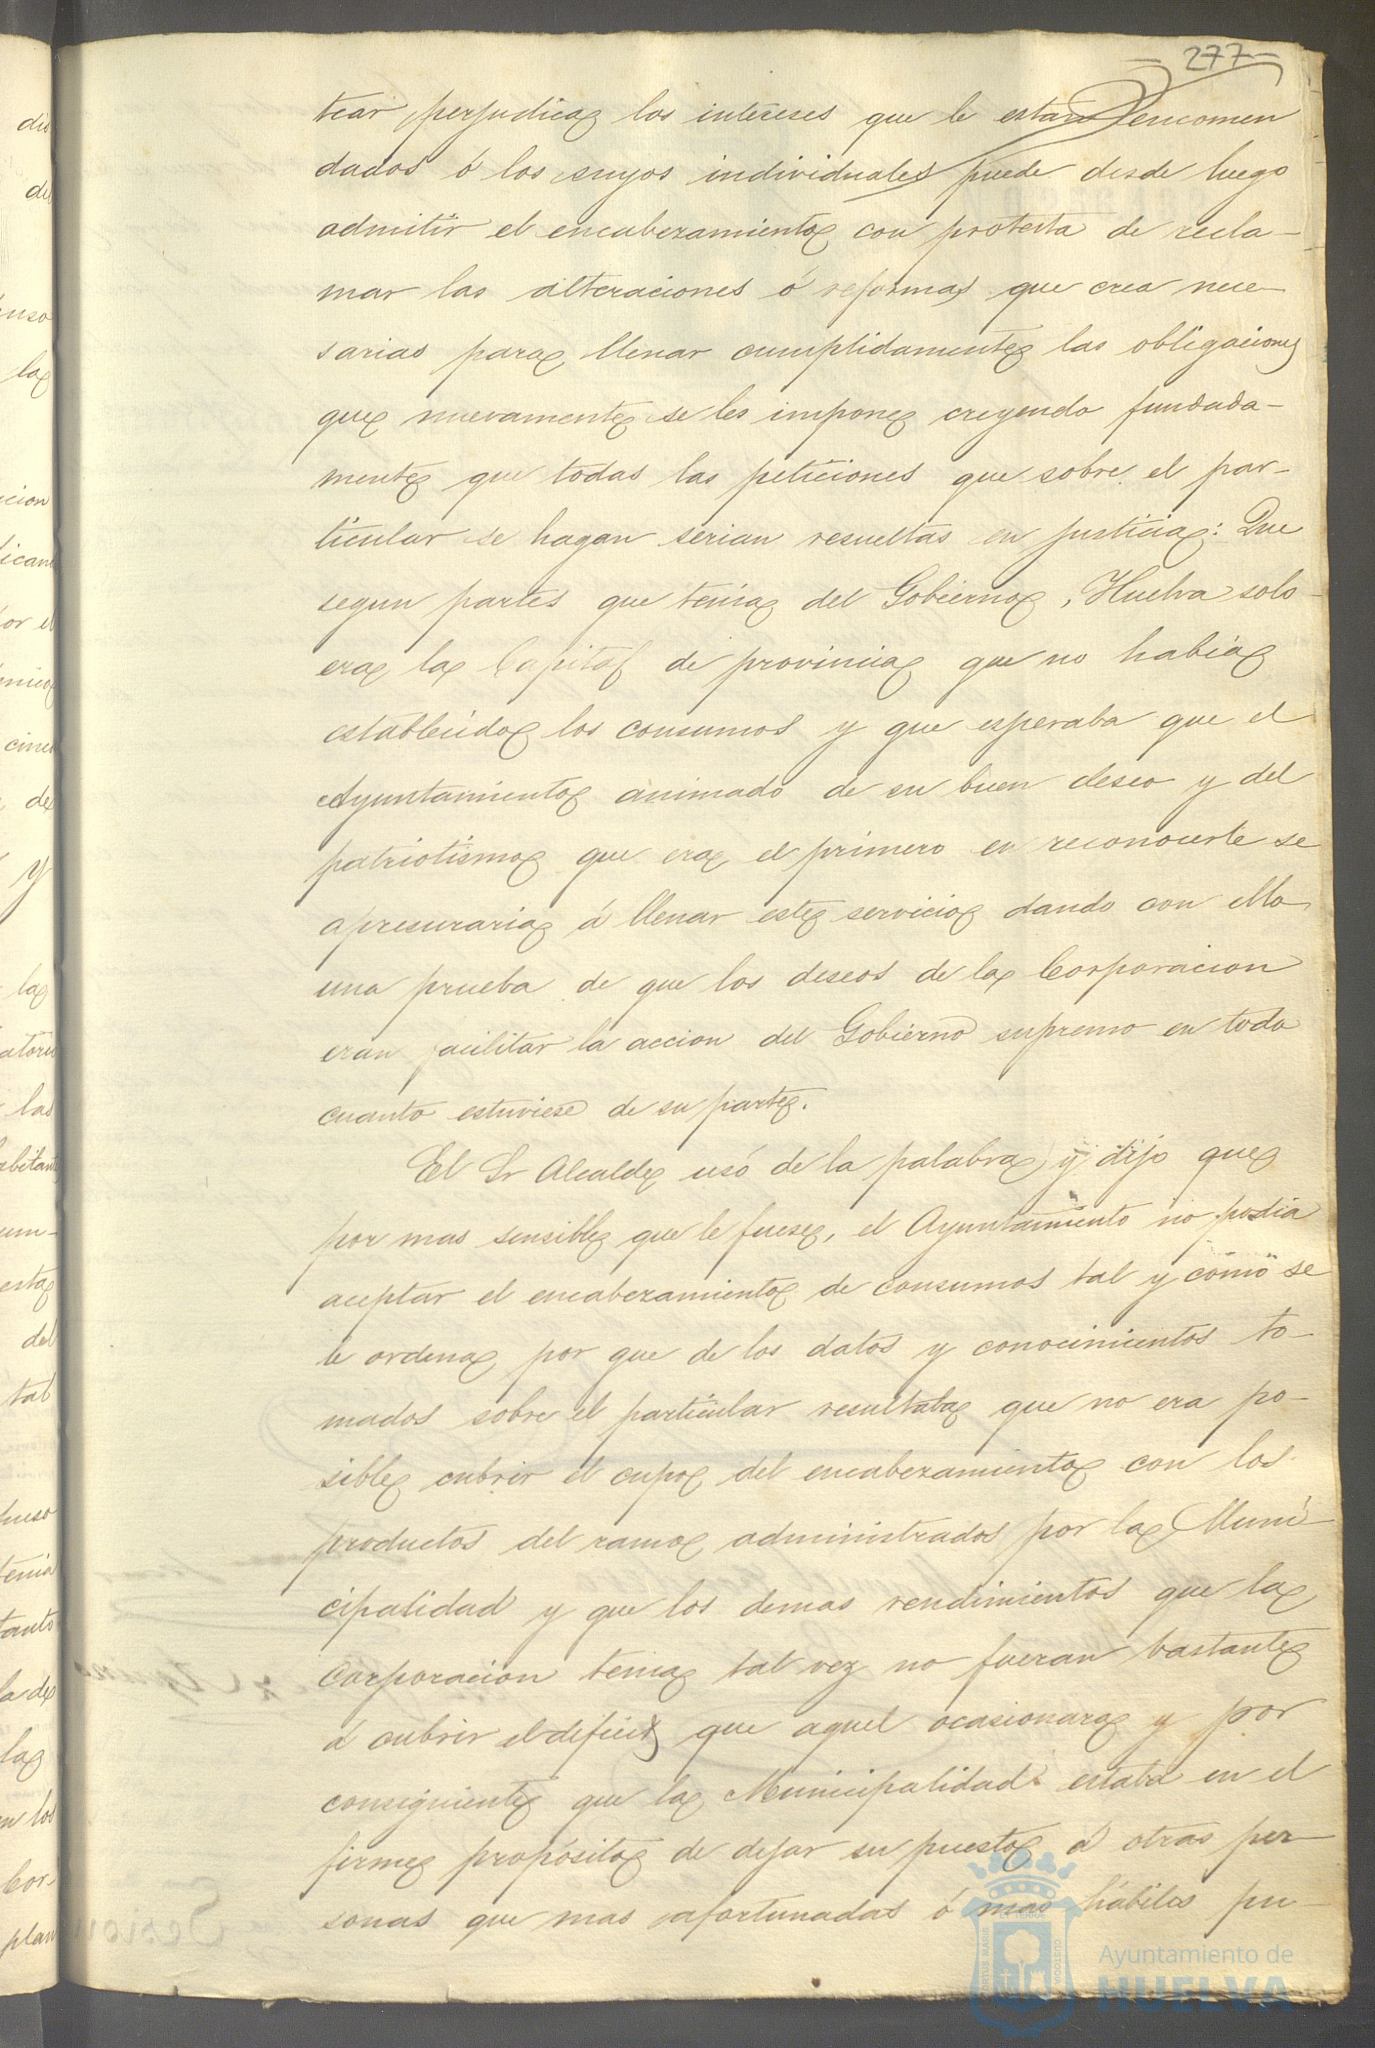 277
tear perjudica los intereses que le estan encomen
dados ó los suyos individuales puede desde luego
admitir el encabezamiento con protesta de recla-
mar las alteraciones ó reformas que crea nece-
sarias para llenar cumplidamente las obligaciones
que nuevamente se les impone creyendo fundada-
mente que todas las peticiones que sobre el par-
ticular se hagan serian resueltas en justicia: Que
segun partes que tenia del Gobierno, Huelva solo
era la Capital de provincia que no habia
establecido los consumos y que esperaba que el
Ayuntamiento animado de su buen deseo y del
patriotismo que era el primero en reconocerle se
apresuraria á llenar este servicio dando con ello
una prueba de que los deseos de la Corporacion
eran facilitar la accion del Gobierno supremo en todo
cuanto estuviese de su parte.
El Sr Alcalde usó de la palabra y dijo que
por mas sensible que le fuese, el Ayuntamiento no podia
aceptar el encabezamiento de consumos tal y como se
le ordena, por que de los datos y conocimientos to-
mados sobre el particular resultaba que no era po-
sible cubrir el cupo del encabezamiento con los
productos del ramo administrados por la Muni-
cipalidad y que los demas rendimientos que la
Corporacion tenia tal vez no fueran bastante
á cubrir el deficit que aquel ocasionara y por
consiguiente que la Municipalidad estaba en el
firme propósito de dejar su puesto á otras per-
sonas que mas afortunadas ó mas hábiles pu-
Ayuntamiento de
HUELVA